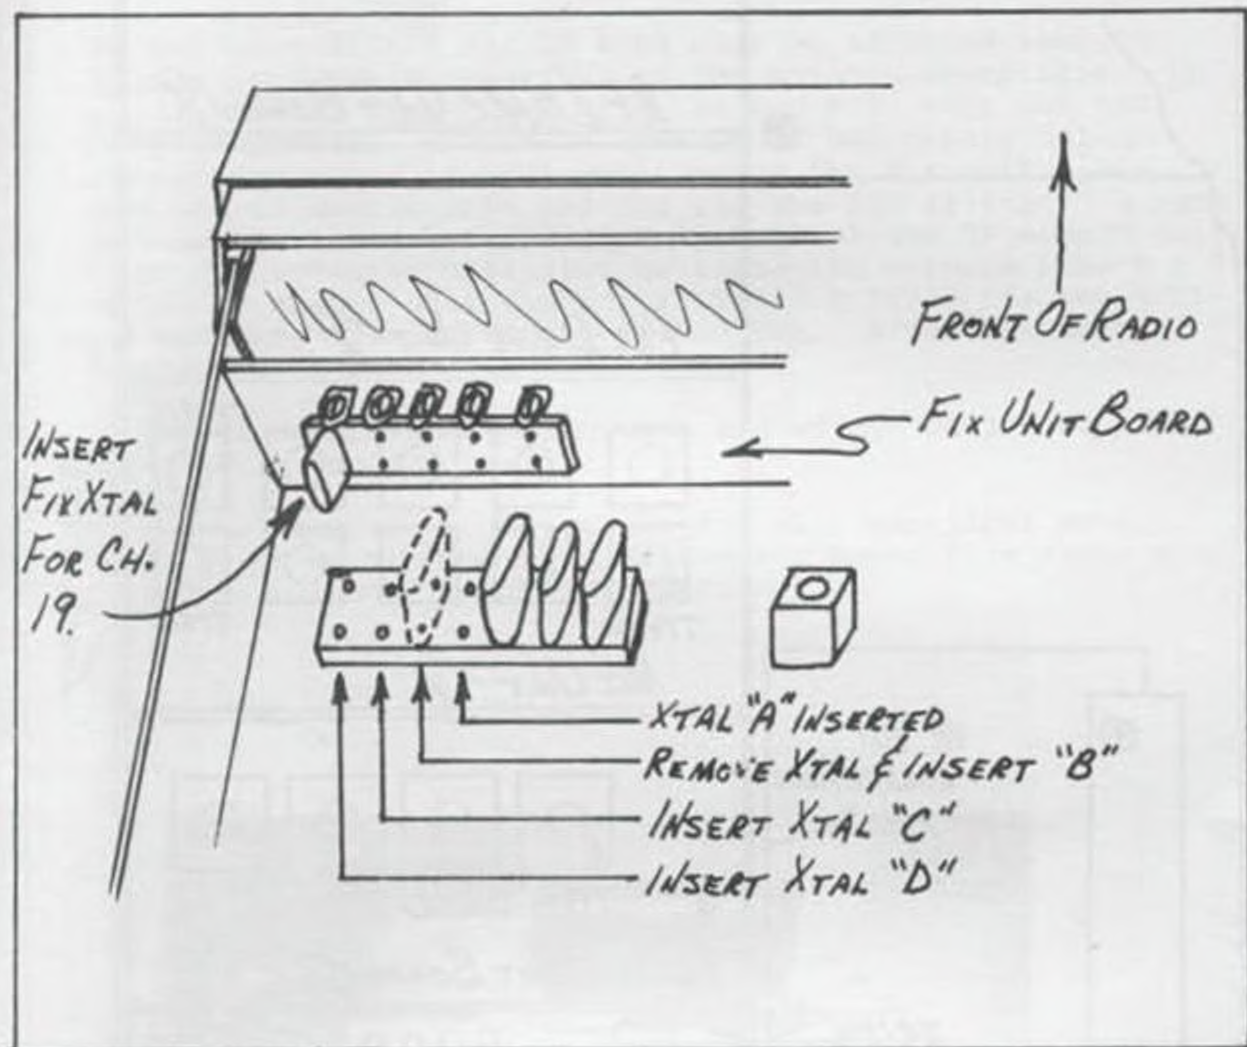 FRONT OF RADIO
FIX UNIT BOARD
INSERT
FIX XTAL
FOR CH.
19.
XTAL "A" INSERTED
REMOVE XTAL & INSERT "B"
INSERT XTAL "C"
INSERT XTAL "D"